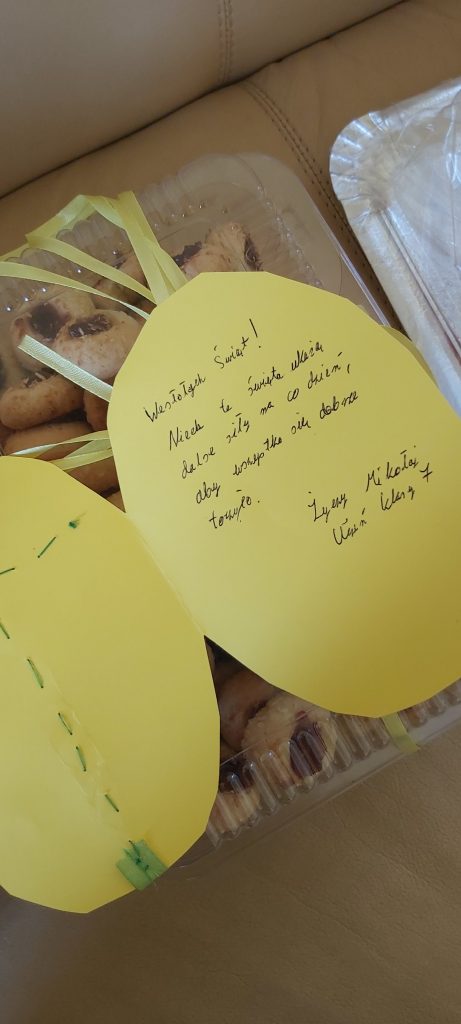 Wesołych Świąt!
Niech te święta ukażą
dalsze siły na co dzień,
aby wszystko się dobrze
toczyło.
Życzy Mikołaj
Uczeń klasy 7